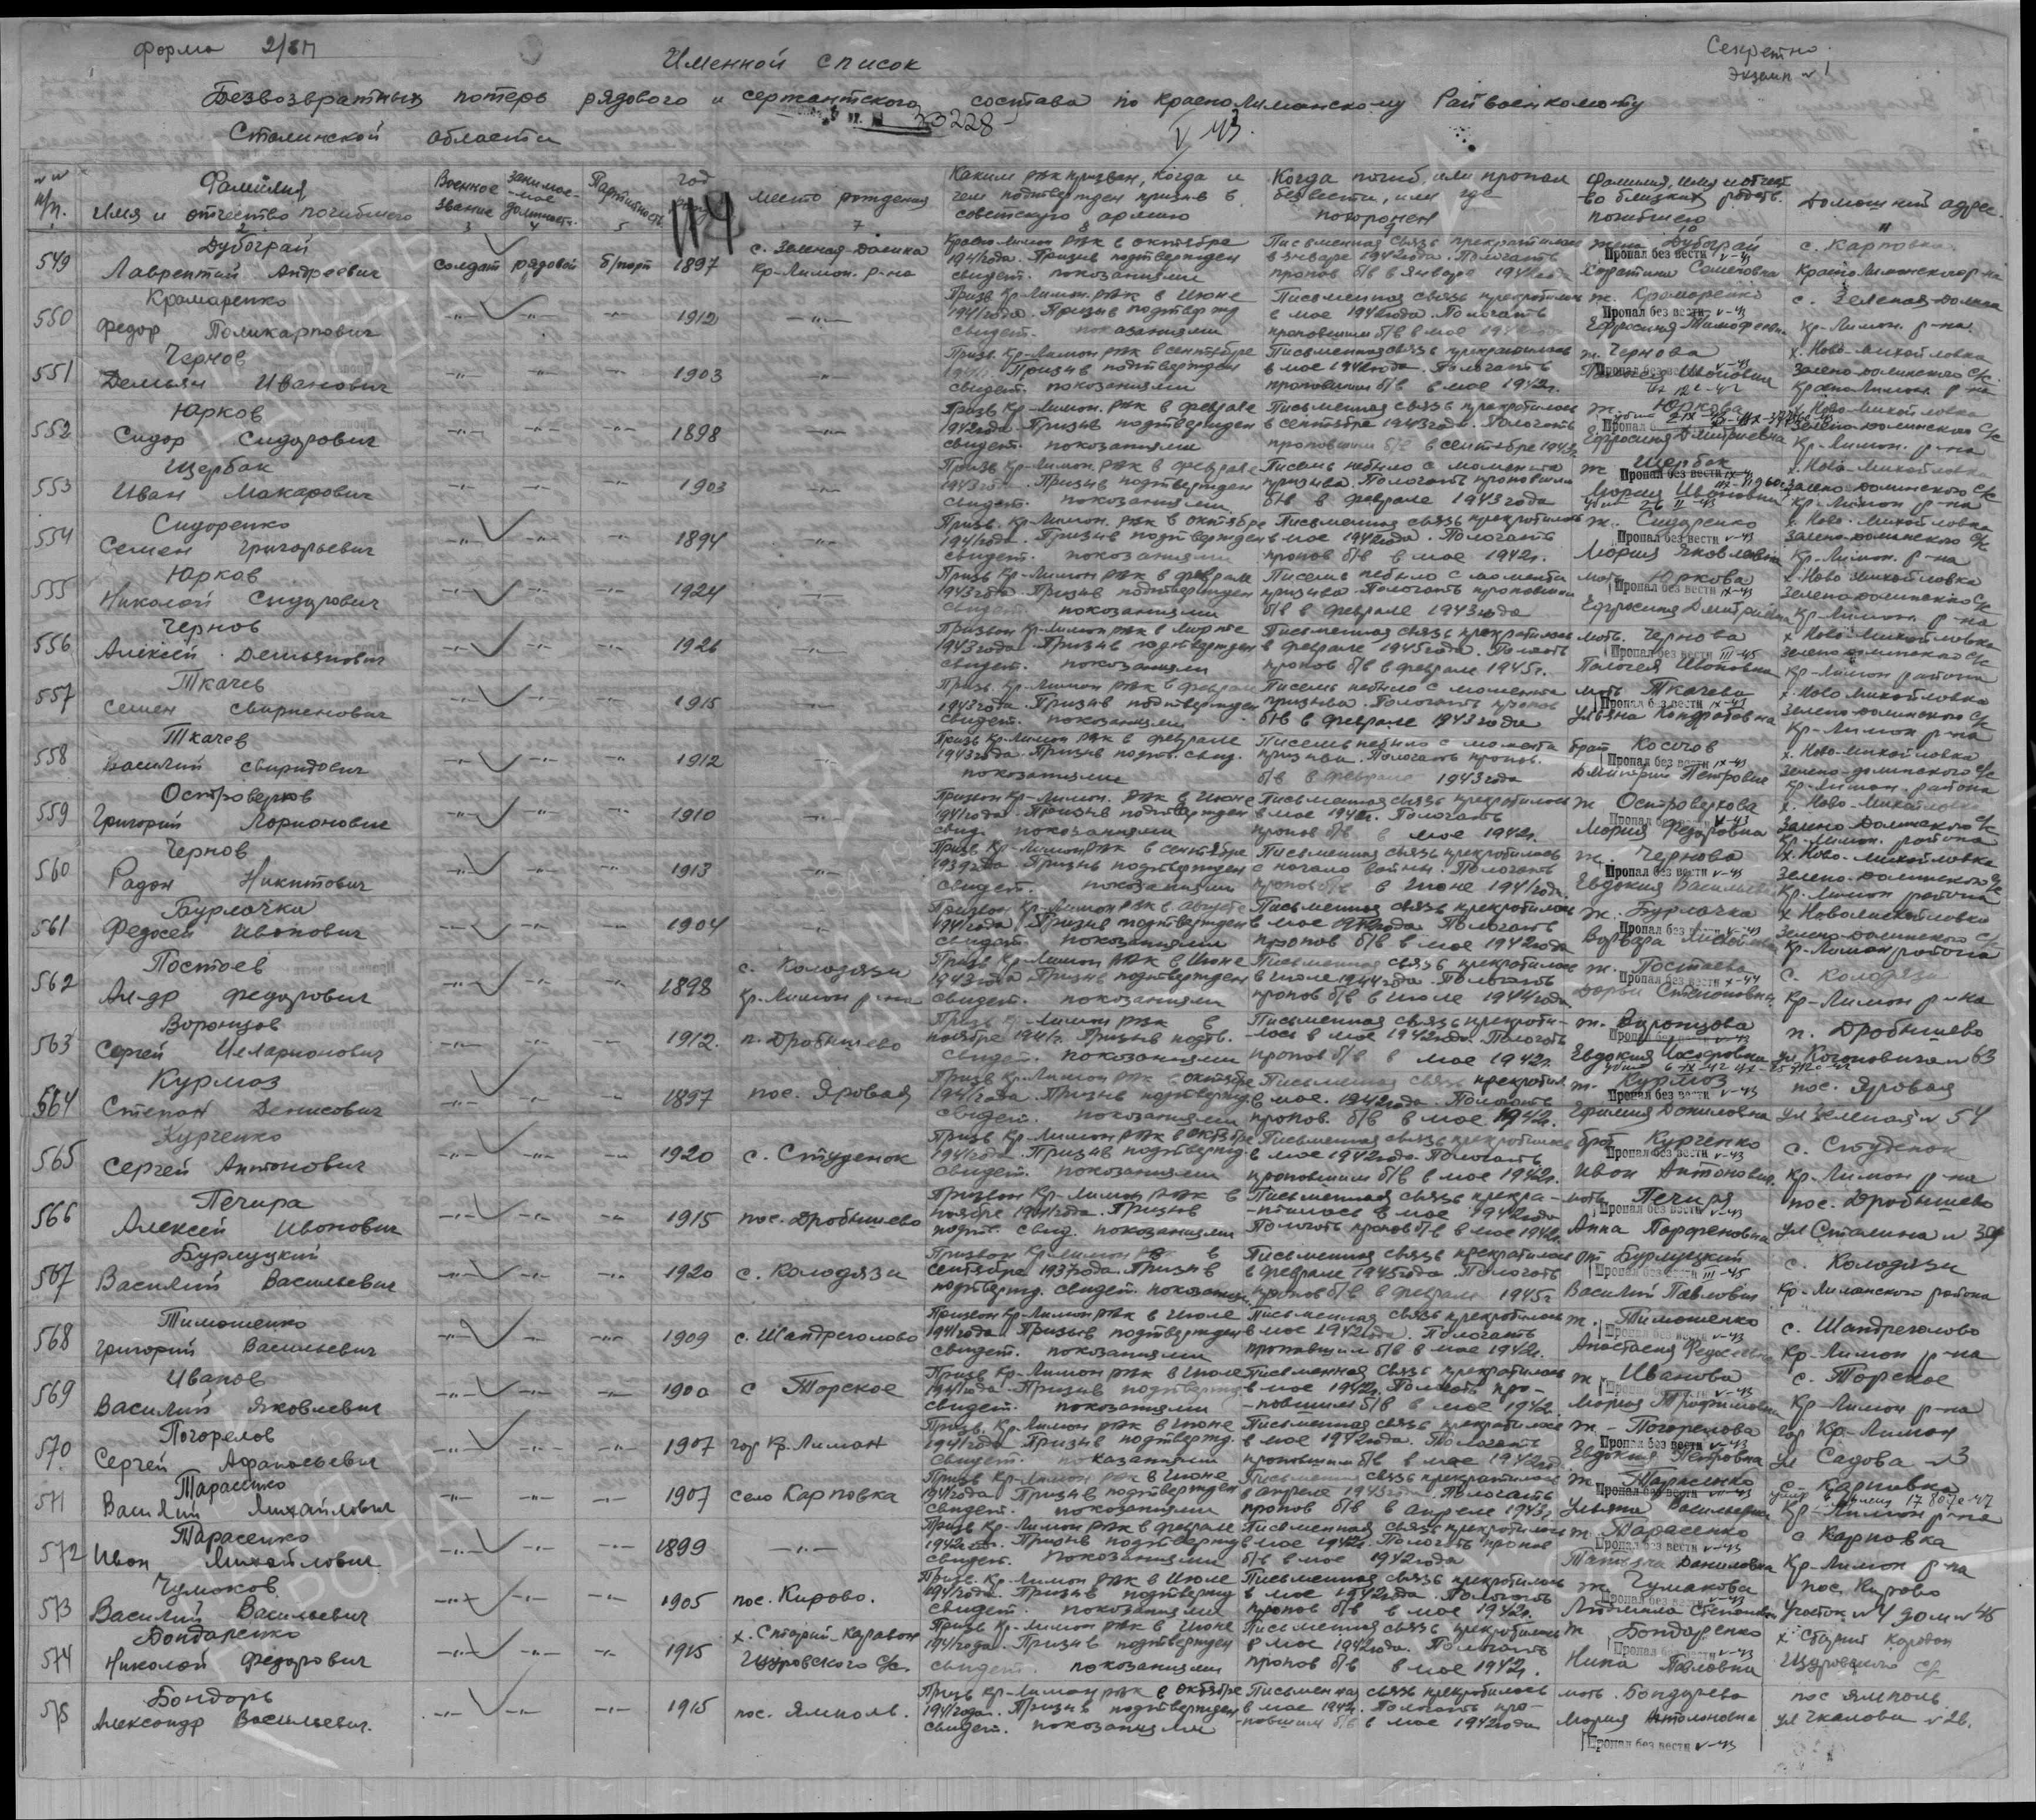 Форма 2/БП
Секретно
Экземп № 1
Именной список
Безвозвратных потерь рядового и сержантского состава по Красно Лиманскому Райвоенкомату
Сталинской области
33228
V 43.
114
№№ п/п. Фамилия Имя и отчество погибшего Военное звание занимае-мая должность Партийность год место рождения Каким РВК призван, когда и чем подтвержден призыв в советскую армию Когда погиб, или пропал без вести, или где похоронен Фамилия, имя и отчест-во близких родств. погибшего Домашний адрес.
549 Дубограй Лаврентий Андреевич солдат рядовой б/парт 1897 с. Зеленая-Долина Кр-Лиман. р-на Красно Лиман РВК в октябре 1941 года. Призыв подтвержден свидет. показаниями Письменная связь прекратилась в январе 1942 года. Полагать пропав б/в в январе 1942 года жена Дубограй Семеновна Пропал без вести V-43 с. Карповка Красно Лиманского р-на
550 Крамаренко Федор Поликарпович 1912 Призв Кр-Лиман. РВК в Июне 1941 года. Призыв подтвержд свидет. показаниями Письменная связь прекратилась в мае 1942 года. Полагать пропавшим б/в в мае ж. Крамаренко Ефросиния Тимофеевн. Пропал без вести V-43 с. Зеленая-Долина Кр-Лиман. р-на
551 Чернов Демьян Иванович 1903 Призв. Кр-Лиман РВК в сентябре Призыв подтвержден свидет. показаниями Письменная связь прекратилась в мае 1942 года. Полагать пропавшим б/в в мае 1942г. ж. Чернова Пропал без вести V-43 х. Ново-Михайловка Зелено-долинского с/с. Красно Лиман. р-на
552 Юрков Сидор Сидорович 1898 Призв Кр-Лиман. РВК в феврале 1942 года. Призыв подтвержден свидет. показаниями Письменная связь прекратилась в сентябре 1943 года. Полагать пропавшим б/в в сентябре 1943г. ж. Юркова Ефросиния Дмитриевна х. Ново-Михайловка Зелено-долинского с/с Кр-Лиман. р-на
553 Щербак Иван Макарович 1903 Призв Кр-Лиман. РВК в феврале 1943 года. Призыв подтвержден свидет. показаниями Писем небыло с момента призыва. Полагать пропавшим б/в в феврале 1943 года ж Щербак Мария Ивановна Пропал без вести х. Ново-Михайловка Зелено-Долинского с/с Кр-Лиман р-на
554 Сидоренко Семен Григорьевич 1894 Призв. Кр-Лиман. РВК в октябре 1941 года. Призыв подтвержден свидет. показаниями Письменная связь прекратилась в мае 1942 года. Полагать пропав б/в в мае 1942г. ж. Сидоренко Мария Яковлевна Пропал без вести V-43 х. Ново-Михайловка Зелено-долинского с/с Кр-Лиман. р-на
555 Юрков Николай Сидорович 1924 Призв Кр-Лиман РВК в феврале 1943 года Призыв подтвержден свидет. показаниями Писем небыло с момента призыва. Полагать пропавшим б/в в феврале 1943 года мать Юркова Ефросиния Дмитриевна Пропал без вести IX-43 х. Ново Михайловка Зелено долинского с/с Кр-Лиман. р-на
556 Чернов Алексей Демьянович 1926 Призван Кр-Лиман РВК в Марте 1943 года Призыв подтвержден свидет. показаниями Письменная связь прекратилась в феврале 1945 года. Полагать пропав б/в в феврале 1945г. мать. Чернова Пелагея Ивановна Пропал без вести III-45 х Ново-Михайловка Зелено долинского с/с Кр-Лиман района
557 Ткачев Семен 1915 Призв. Кр-Лиман РВК в феврале 1943 года. Призыв подтвержден свидет. показаниями Писем небыло с момента призыва. Полагать пропав б/в в феврале 1943 года мать Ткачева Ульяна Кондратовна Пропал без вести х. Ново Михайловка Зелено-долинского с/с Кр-Лиман р-на
558 Ткачев Василий Свиридович 1912 Призв Кр-Лиман РВК в феврале 1943 года. Призыв подтв. свид. показаниями Писем небыло с момента призыва. Полагать пропав. б/в в феврале 1943 года брат Косогов Дмитрий Петрович Пропал без вести IX-43 х. Ново-Михайловка Зелено-долинского с/с Кр-Лиман. района
559 Островерхов Григорий Ларионович 1910 Призван Кр-Лиман. РВК в Июне 1941 года. Призыв подтвержден свид. показаниями Письменная связь прекратилась в мае 1942г. Полагать пропав б/в в мае 1942г. ж Островерхова Мария Федоровна Пропал без вести V-43 х. Ново-Михайловка Зелено Долинского с/с Кр-Лиман. района
560 Чернов Радон Никитович 1913 Призв. Кр-Лиман РВК в сентябре 1939 года. Призыв подтвержден свидет. показаниями Письменная связь прекратилась с начала войны. Полагать пропав б/в в Июне 1941 года. ж. Чернова Евдокия Пропал без вести V-43 х. Ново-Михайловка Зелено-Долинского с/с Кр-Лиман района
561 Бурлачка Федосей Иванович 1904 Призван Кр-Лиман РВК в Августе 1941 года Призыв подтвержден свидет. показаниями Письменная связь прекратилась в мае 1942 года. Полагать пропав б/в в мае 1942 года ж. Бурлачка Варвара Пропал без вести V-43 х Новомихайловка Зелено-долинского с/с Кр-Лиман района
562 Постоев Ал-др Федорович 1898 с. Колодязи Кр-Лиман р-на Призв Кр-Лиман РВК в Июне 1943 года Призыв подтвержден свидет. показаниями Письменная связь прекратилась в июле 1944 года. Полагать пропав б/в в июле 1944 года ж. Постаева Дарья Степановна Пропал без вести с. Колодязи Кр-Лиман р-на
563 Воронцов Сергей Илларионович 1912. п. Дробышево Призв Кр-Лиман РВК в ноябре 1941г. Призыв подтв. свидет. показаниями Письменная связь прекрати-лась в мае 1942 года. Полагать пропав б/в в мае 1942г. ж. Воронцова Евдокия Иосифовна Пропал без вести V-43 п. Дробышево ул Кагановича № 63
564 Курмаз Степан Денисович 1897 пос. Яровая Призв Кр-Лиман РВК в октябре 1941 года. Призыв подтвержд. свидет. показаниями Письменная связь прекратил в мае. 1942 года. Полагать пропав. б/в в мае 1942г. ж. Курмаз Ефимия Даниловна Пропал без вести V-43 пос. Яровая ул Зеленая № 54
565 Курченко Сергей Антонович 1920 с. Студенок Призв Кр-Лиман РВК в октябре 1941 года. Призыв подтвержд. свидет. показаниями Письменная связь прекратилась в мае 1942 года. Полагать пропавшим б/в в мае 1942г. брат Курченко Иван Антонович. Пропал без вести V-43 с. Студенок Кр-Лиман р-на
566 Печира Алексей Иванович 1915 пос. Дробышево Призван Кр-Лиман РВК в ноябре 1941 года. Призыв подтв. свид. показаниями Письменная связь прекра-тилась в мае 1942 года Полагать пропав б/в в мае 1942г. мать Печиря Анна Парфеновна Пропал без вести V-43 пос. Дробышево ул Сталина №
567 Бурлуцкий Василий Васильевич 1920 с. Колодязи Призван Кр-Лиман РВК в сентябре 1937 года. Призыв подтвержд. свидет. показания Письменная связь прекратилась в феврале 1945 года. Полагать пропав б/в в феврале 1945г отец Бурлуцкий Василий Павлович Пропал без вести III-45 с. Колодязи Кр-Лиманского района
568 Тимошенко Григорий Васильевич 1909 с. Шандреголово Призван Кр-Лиман РВК в Июле 1941 года. Призыв подтвержден свидет. показаниями Письменная связь прекратилась в мае 1942 года. Полагать пропавшим б/в в мае 1942г. ж. Тимошенко Анастасия Федосеевна Пропал без вести V-43 с. Шандреголово Кр-Лиман р-на
569 Иванов Василий Яковлевич 1900 с Торское Призв Кр-Лиман РВК в Июле 1941 года. Призыв подтвержд свидет. показаниями Письменная связь прекратилась в мае 1942г. Полагать про-павшим б/в в мае 1942 ж Иванова Мария Трофимовна Пропал без вести V-43 с. Торское Кр-Лиман р-на
570 Погорелов Сергей Афанасьевич 1907 гор Кр. Лиман Призв. Кр-Лиман РВК в Июне 1941 года Призыв подтвержд. свидет. показаниями Письменная связь прекратилась в мае 1942 года. Полагать пропавшим б/в в мае 1942 год. ж- Погорелова Евдокия Петровна Пропал без вести V-43 гор Кр-Лиман ул Садова № 3
571 Тарасенко Василий Михайлович 1907 село Карповка Призв Кр-Лиман РВК в Июне 1941 года Призыв подтвержден свидет. показаниями Письменная связь прекратилась в апреле 1943 года. Полагать пропав б/в в апреле 1943г. ж Тарасенко Ульяна Васильевна Пропал без вести с. Карповка Кр-Лиман р-на
572 Тарасенко Иван Михайлович 1899 Призв Кр-Лиман РВК в феврале Призыв подтвержд свидет. показаниями Письменная связь прекратилась в мае 1942г. Полагать пропав б/в в мае 1942 года ж Тарасенко Татьяна Даниловна Пропал без вести V-43 с Карповка Кр-Лиман р-на
573 Чумаков Василий Васильевич 1905 пос. Кирово. Призв. Кр-Лиман РВК в Июле 1941 года. Призыв подтвержд свидет. показаниями Письменная связь прекратилась в мае 1942 года. Полагать пропав б/в в мае 1942г. ж Чумакова Пропал без вести V-43 пос. Кирово Участок № 4 дом № 45
574 Бондаренко Николай Федорович 1915 х. Старый-Караван Щуровского с/с. Призв Кр-Лиман РВК в Июне 1941 года. Призыв подтвержден свидет. показаниями Письменная связь прекратилась в мае 1942 года. Полагать пропав б/в в мае 1942г. ж Бондаренко Нина Павловна Пропал без вести V-43 х Старый Караван Щуровского с/с
575 Бондарь Александр Васильевич. 1915 пос. Ямполь. Призв Кр-Лиман РВК в октябре 1941 года. Призыв подтвержден свидет. показаниями Письменная связь прекратилась в мае 1942г. Полагать про-павшим б/в в мае 1942 года мать. Бондарева Мария Антоновна Пропал без вести V-43 пос Ямполь ул Чкалова № 26.